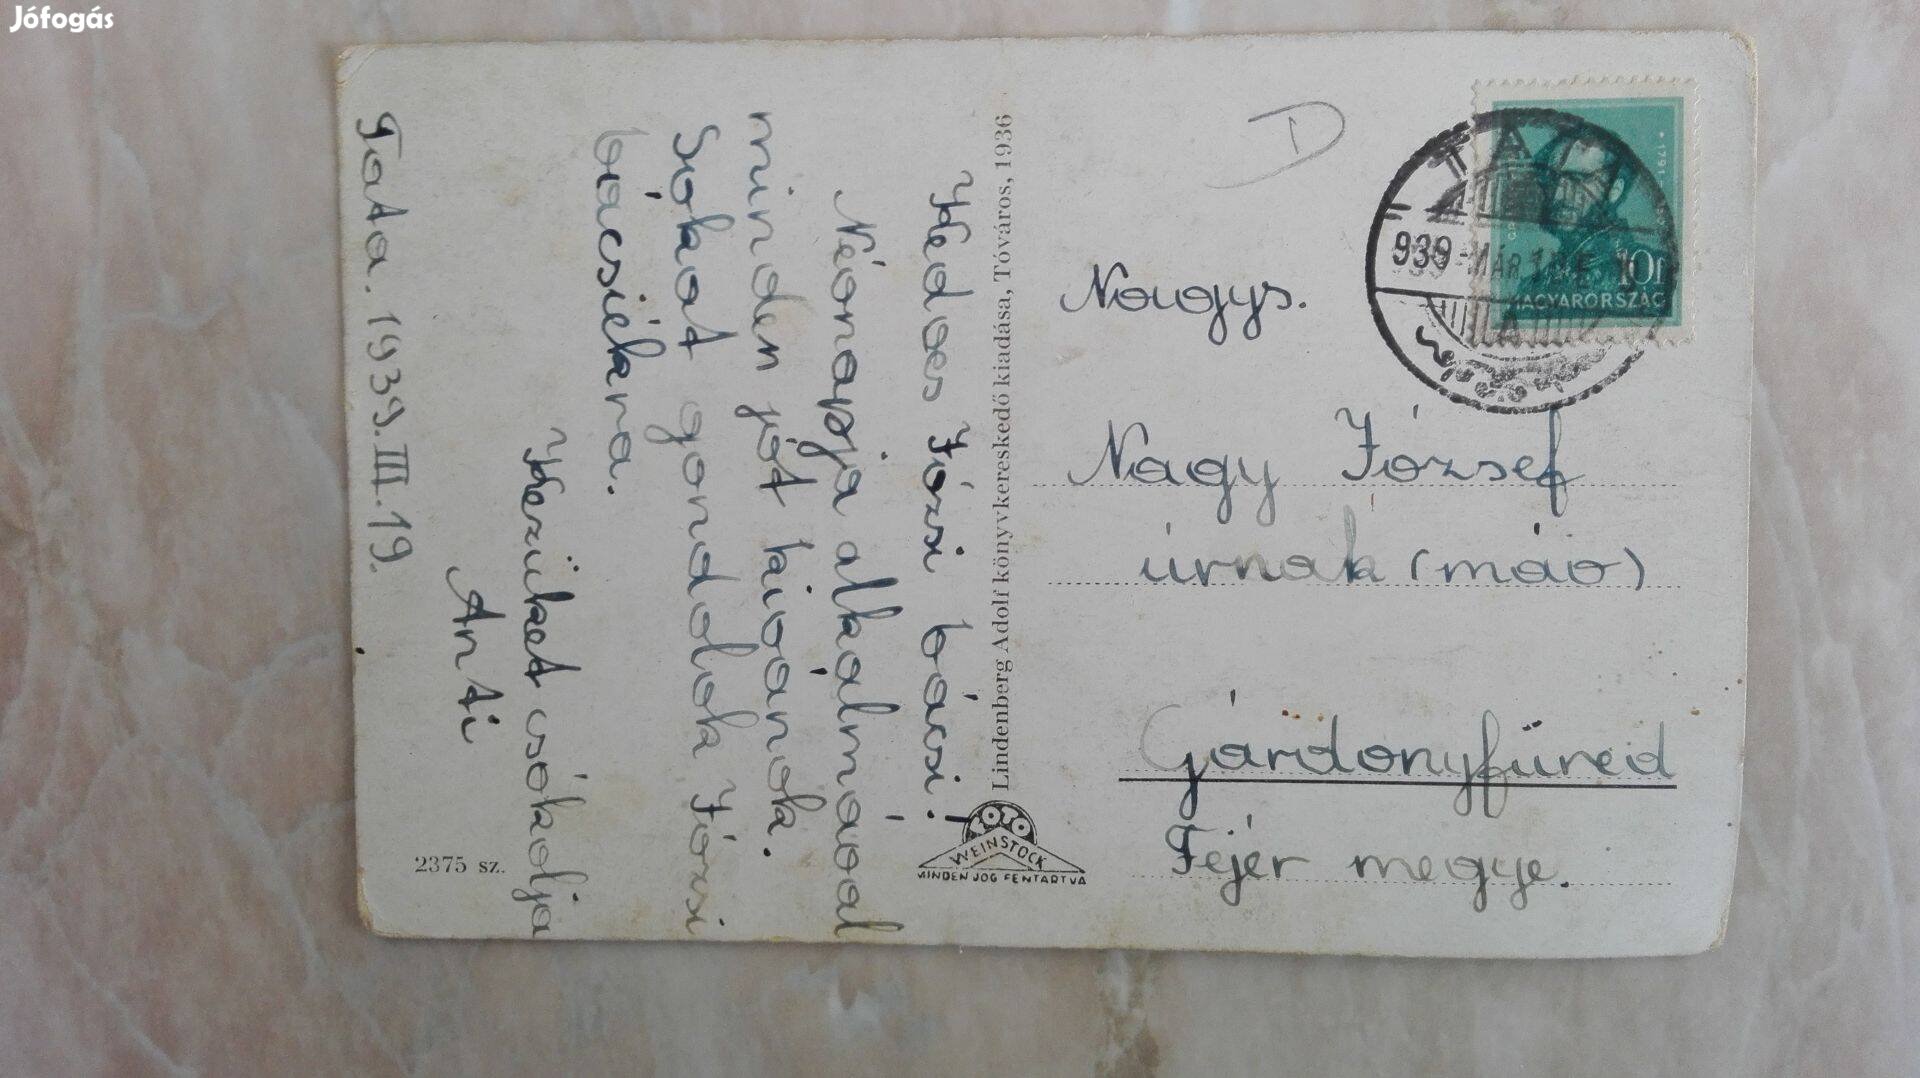 Jófogás
Kedves Józsi bácsi!
Néonapja alkalmával
minden jót kivánok.
Sokat gondolok Józsi
bácsiékra.
Kezüket csókolja
Anti
Tata. 1939.III.19.
2375 sz.
Lindenberg Adolf könyvkereskedő kiadása, Tóváros, 1936
FOTO
WEINSTOCK
MINDEN JOG FENTARTVA
D
TATA
939 MÁR.
10f
MAGYARORSZÁG
Nagys.
Nagy József
úrnak (máv)
Gárdonyfüred
Fejér megye.